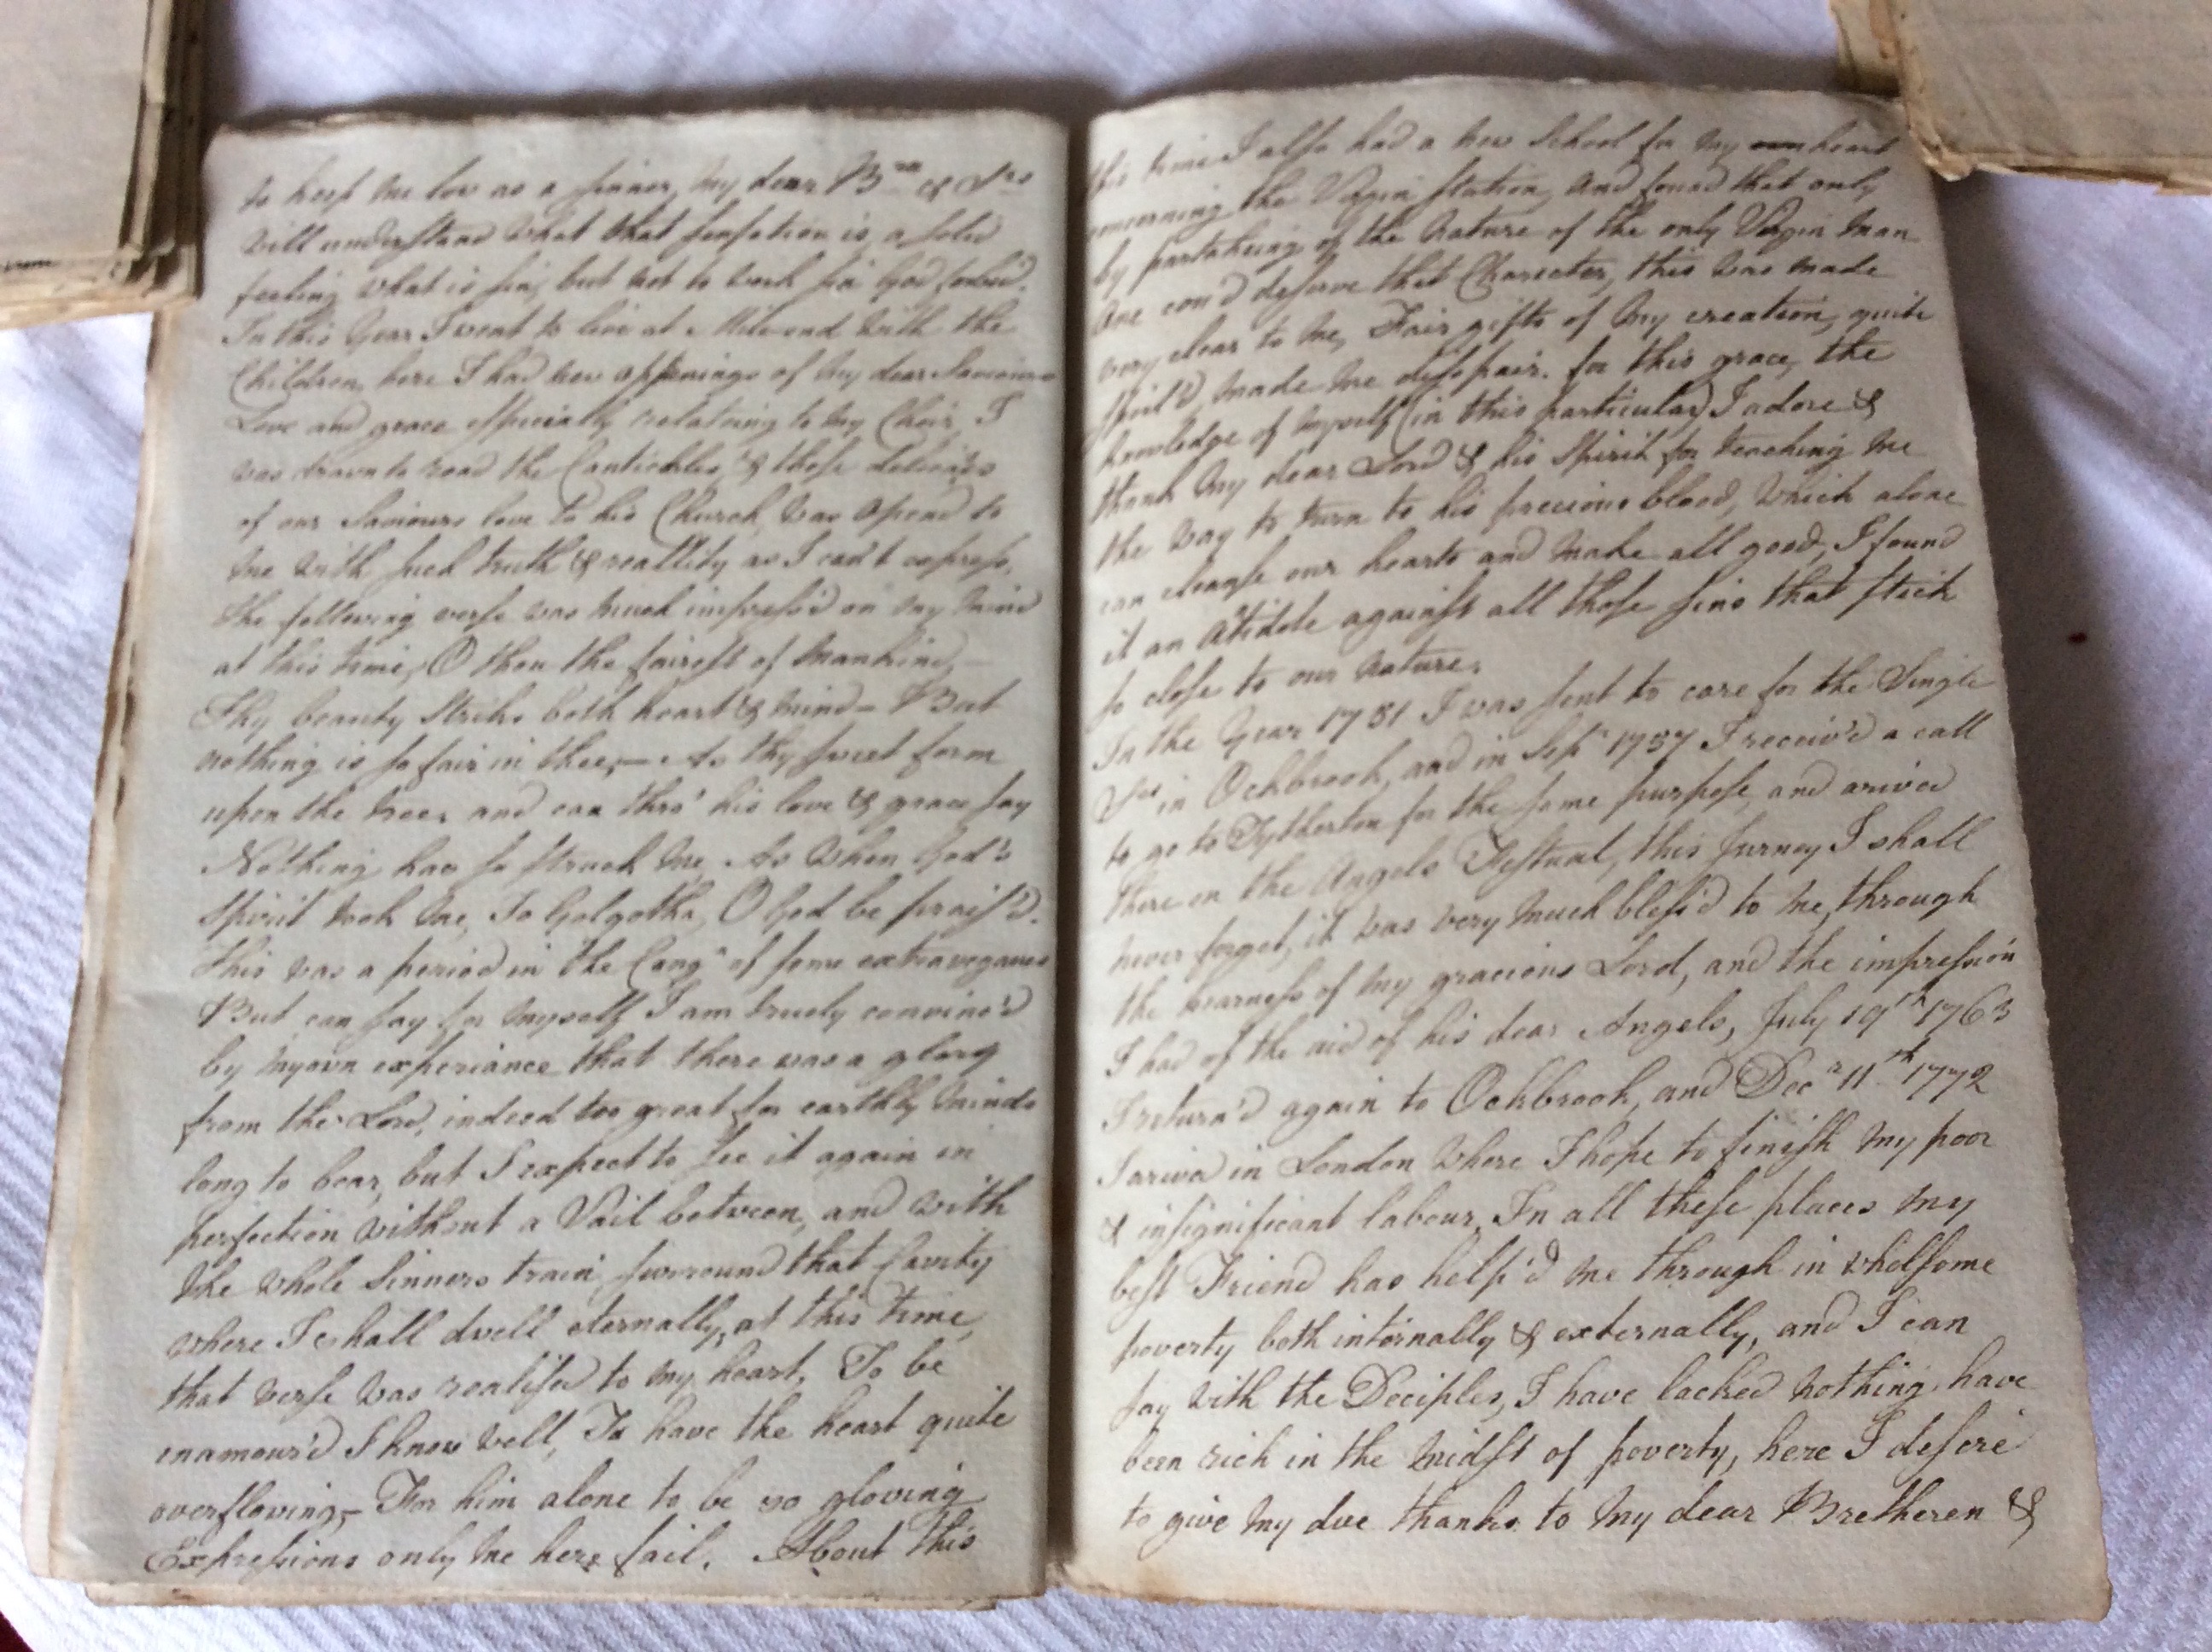 to keep me low as a sinner, my dear Brn & Srs
will understand what that sensation is, a solid
feeling what is sin, but not to work sin God forbid.
In this Year I went to live at Mile-end with the
Children, here I had new oppenings of my dear Saviours
Love and grace especially relateing to my Choir, I
was drawn to read the Cantickles, & those delicates
of our Saviours love to his Church, was opend to
me with such truth & reallity as I can't express,
the following verse was much impress'd on my mind
at this time, O thou the fairest of Mankind,
Thy beauty strikes both heart & mind – But
nothing is so fair in thee, – As thy sweet form
upon the tree, and can thro' his love & grace say
Nothing has so struck me, As when God's
Spirit took me, To Golgotha, O God be prais'd.
This was a period in the Congn of some extravegance
But can say for myself I am truely convinc'd
by my own experiance that there was a glory
from the Lord, indeed too great for earthly minds
long to bear, but I expect to see it again in
perfection without a Vail between, and with
the whole Sinners train surround that Cavity
where I shall dwell eternally, at this time,
that verse was realised to my heart, To be
inamour'd I know well, To have the heart quite
overflowing, – For him alone to be so glowing
Expressions only me here fail. About this
this time I also had a new School for my heart
concerning the Virgin station, and found that only
by partakeing of the Nature of the only Virgin Man
one cou'd deserve that Charecter, this was made
very clear to me, Fair gifts of my creation, quite
spoil'd, made me disspair. for this grace, the
knowledge of myself (in this particular) I adore &
thank my dear Lord & his Spirit for teaching me
the way to turn to his precious blood, which alone
can cleanse our hearts and make all good, I found
it an Atidote against all those sins that stick
so close to our nature.
In the Year 1751 I was sent to care for the Single
Srs in Ockbrook, and in Sepr 1757 I receiv'd a call
to go to Tytherton for the same purpose, and arived
there on the Angels Festual, this Jurney I shall
never forget, it was very much bless'd to me, through
the nearness of my gracious Lord, and the impression
I had of the aid of his dear Angels, July 19th 1763
I return'd again to Ockbrook, and Decr 11th 1772
I arived in London where I hope to finish my poor
& insignificant labour. In all these places my
best Friend has help'd me through in wholsome
poverty both internally & externally, and I can
say with the Deciples, I have lacked nothing, have
been rich in the midst of poverty, here I desire
to give my due thanks to my dear Bretheren &